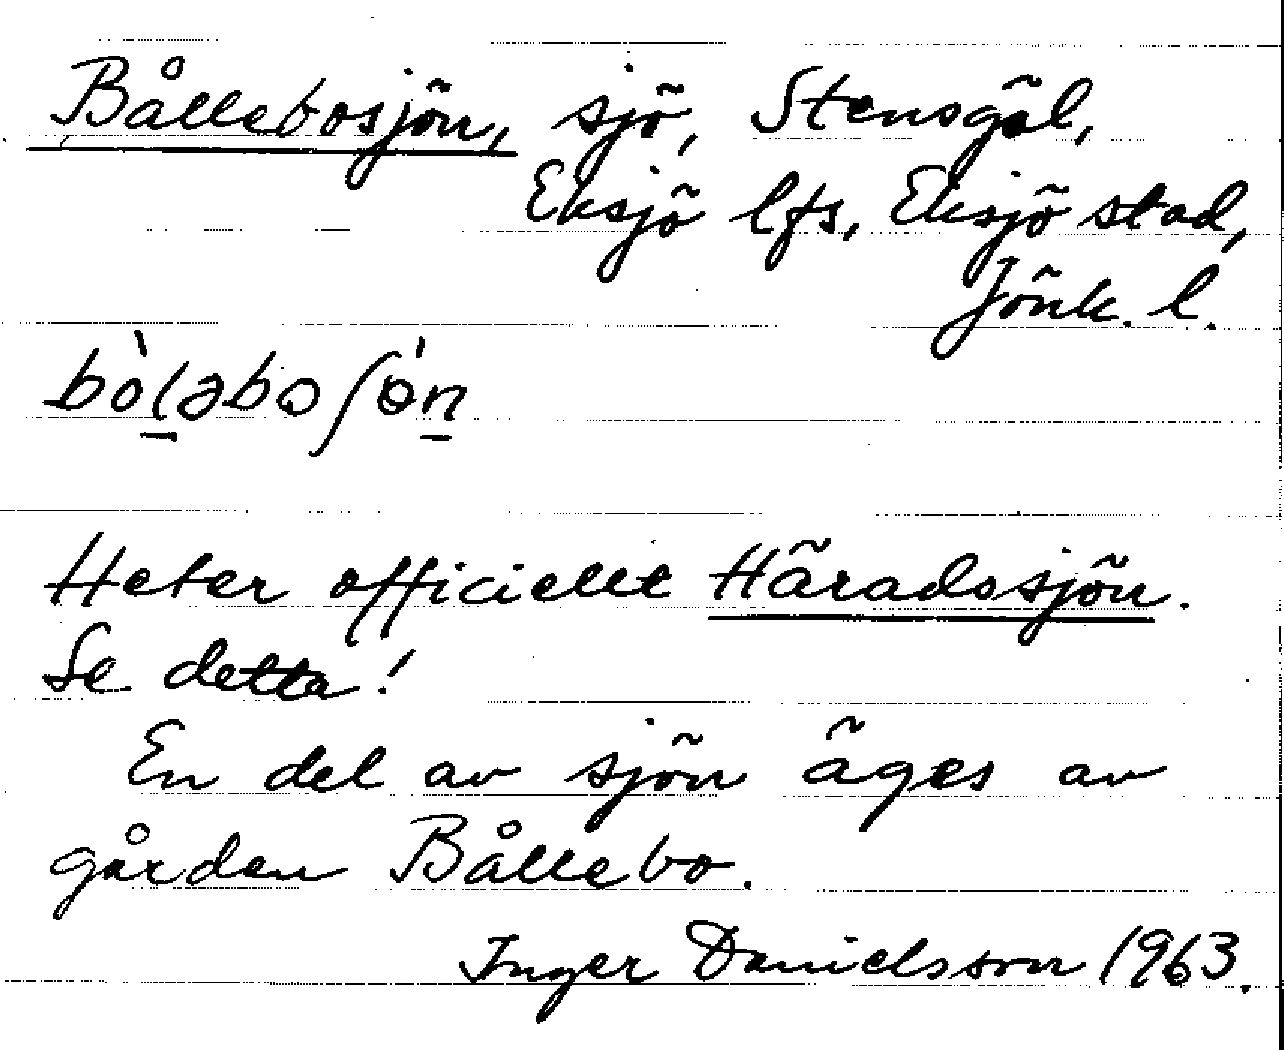 Bållebosjön, sjö, Stensgöl,
Eksjö lfs, Eksjö stad,
Jönk. l.
bòl̠əbωʃɵ̀n̠
Heter officiellt Häradssjön.
Se detta!
En del av sjön äges av
gården Bållebo.
Inger Danielsson 1963.